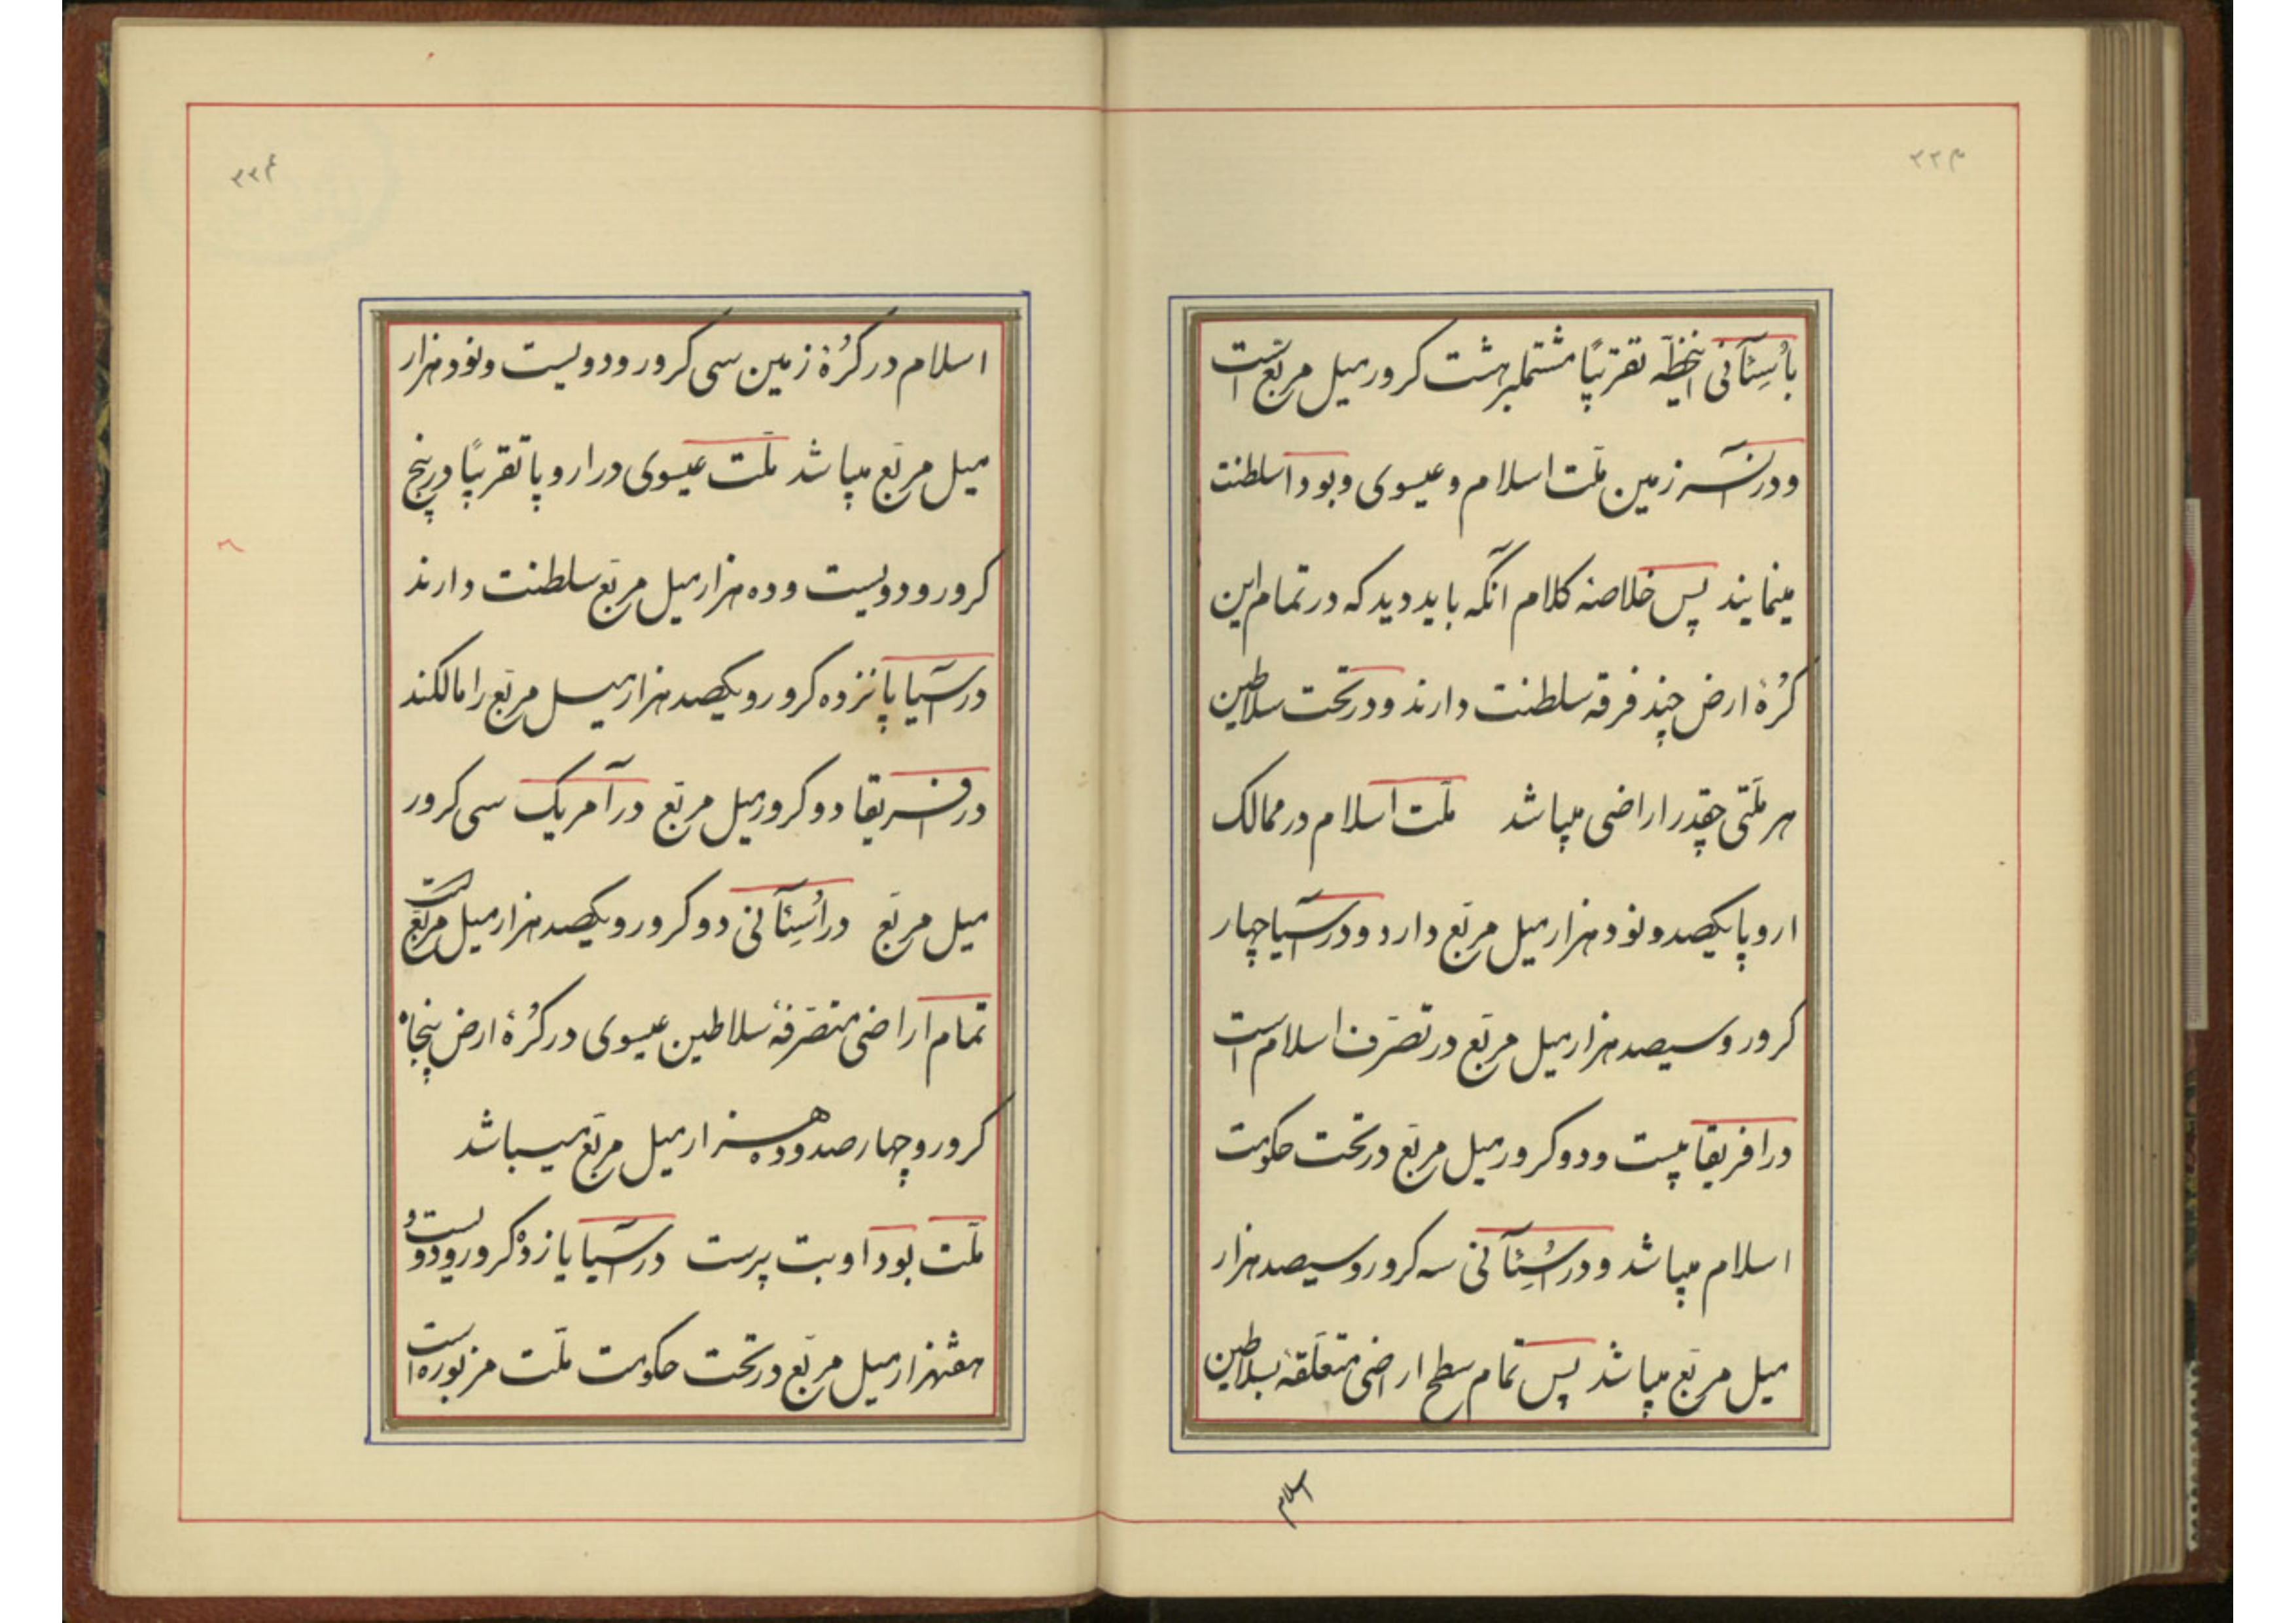 ۳۳۳
باُسِتآنی اینخطّه تقریباً مشتملبر هشت کرور میل مربّع است
و در آنسرزمین ملّت اسلام و عیسوی و بودا سلطنت
مینمایند پس خلاصه کلام آنکه باید دید که در تمام این
کُرهٔ ارض چند فرقه سلطنت دارند و در تحت سلاطین
هر ملّتی چقدر اراضی میباشد ملّت اسلام در ممالک
اروپا یکصد و نود هزار میل مربّع دارد و در آسیا چهار
کرور و سیصد هزار میل مربّع در تصرّف اسلام است
در افریقا بیست و دو کرور میل مربّع در تحت حکومت
اسلام میباشد و در اُسِتآنی سه کرور و سیصد هزار
میل مربّع میباشد پس تمام سطح اراضی متعلّقهٔ بسلاطین
اسلام
۳۳۴
اسلام در کُرهٔ زمین سی کرور و دویست و نود هزار
میل مربّع میباشد ملّت عیسوی در اروپا تقریباً در پنج
کرور و دویست و ده هزار میل مربّع سلطنت دارند
در آسیا پانزده کرور و یکصد هزار میل مربّع را مالکند
در افریقا دو کرور میل مربّع در آمریک سی کرور
میل مربّع در اُسِتآنی دو کرور و یکصد هزار میل مربّع است
تمام اراضی متصرّفهٔ سلاطین عیسوی در کُرهٔ ارض پنجاه
کرور و چهارصد و ده هزار میل مربّع میباشد
ملّت بودا و بت پرست در آسیا یازده کرور و دویست و
هفتهزار میل مربّع در تحت حکومت ملّت مزبوره است